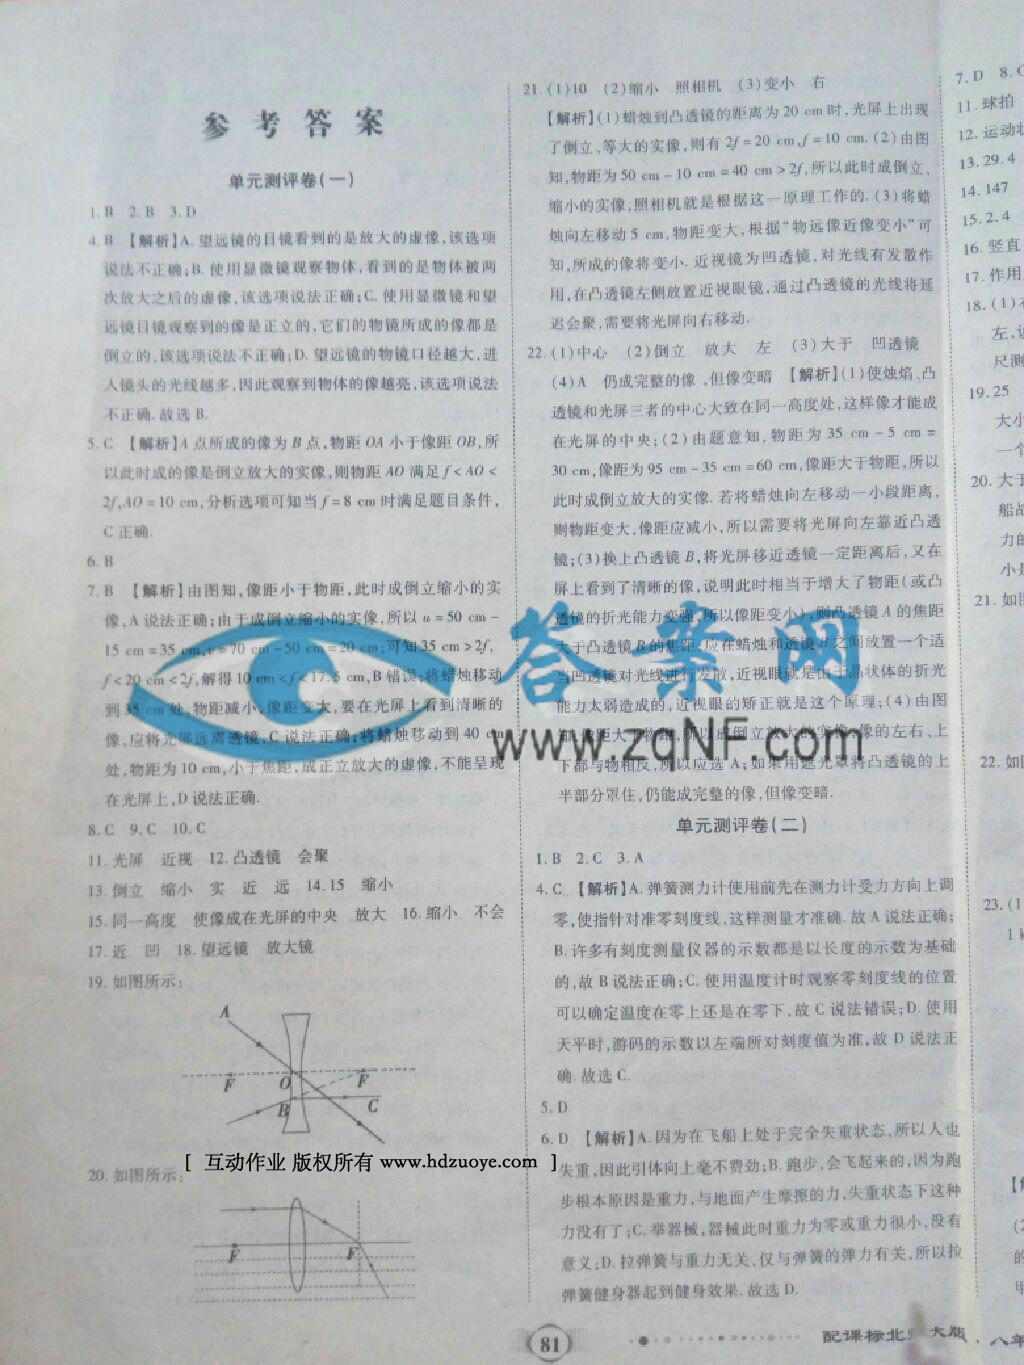 参考答案
单元测评卷(一)
1. B 2. B 3. D
4. B 【解析】A. 望远镜的目镜看到的是放大的虚像,该选项
说法不正确;B. 使用显微镜观察物体,看到的是物体被两
次放大之后的虚像,该选项说法正确;C. 使用显微镜和望
远镜目镜观察到的像是正立的,它们的物镜所成的像都是
倒立的,该选项说法不正确;D. 望远镜的物镜口径越大,进
入镜头的光线越多,因此观察到物体的像越亮,该选项说法
不正确. 故选 B.
5. C 【解析】A 点所成的像为 B 点,物距 OA 小于像距 OB,所
以此时成的像是倒立放大的实像,则物距 AO 满足 f<AO<
2f,AO=10 cm,分析选项可知当 f=8 cm 时满足题目条件,
C 正确.
6. B
7. B 【解析】由图知,像距小于物距,此时成倒立缩小的实
像,A 说法正确;由于成倒立缩小的实像,所以 u=50 cm-
15 cm=35 cm,v=70 cm-50 cm=20 cm;可知35 cm>2f,
f<20 cm<2f,解得 10 cm<f<17.5 cm,B 错误;将蜡烛移动
到 35 cm 处,物距减小,像距变大,要在光屏上看到清晰的
像,应将光屏远离透镜,C 说法正确;将蜡烛移动到 40 cm
处,物距为 10 cm,小于焦距,成正立放大的虚像,不能呈现
在光屏上,D 说法正确.
8. C 9. C 10. C
11. 光屏 近视 12. 凸透镜 会聚
13. 倒立 缩小 实 近 远 14. 15 缩小
15. 同一高度 使像成在光屏的中央 放大 16. 缩小 不会
17. 近 凹 18. 望远镜 放大镜
19. 如图所示:
A
F O F
B C
20. 如图所示:
F F
21. (1)10 (2)缩小 照相机 (3)变小 右
【解析】(1)蜡烛到凸透镜的距离为 20 cm 时,光屏上出现
了倒立、等大的实像,则有 2f=20 cm,f=10 cm. (2)由图
知,物距为 50 cm-10 cm=40 cm>2f,所以此时成倒立、
缩小的实像,照相机就是根据这一原理工作的. (3)将蜡
烛向左移动 5 cm,物距变大,根据“物远像近像变小”可
知,所成的像将变小. 近视镜为凹透镜,对光线有发散作
用,在凸透镜左侧放置近视眼镜,通过凸透镜的光线将延
迟会聚,需要将光屏向右移动.
22. (1)中心 (2)倒立 放大 左 (3)大于 凹透镜
(4)A 仍成完整的像,但像变暗 【解析】(1)使烛焰、凸
透镜和光屏三者的中心大致在同一高度处,这样像才能成
在光屏的中央;(2)由题意知,物距为 35 cm-5 cm=
30 cm,像距为 95 cm-35 cm=60 cm,像距大于物距,所以
此时成倒立放大的实像. 若将蜡烛向左移动一小段距离,
则物距变大,像距应减小,所以需要将光屏向左靠近凸透
镜;(3)换上凸透镜 B,将光屏移近透镜一定距离后,又在
屏上看到了清晰的像,说明此时相当于增大了物距(或凸
透镜的折光能力变强,所以像距变小),则凸透镜 A 的焦距
大于凸透镜 B 的焦距;应在蜡烛和透镜 B 之间放置一个适
当凹透镜对光线进行发散,近视眼就是由于晶状体的折光
能力太弱造成的,近视眼的矫正就是这个原理;(4)由图
知,像距大于物距,所以成倒立放大的实像,像的左右、上
下都与物相反,所以应选 A;如果用遮光罩将凸透镜的上
半部分罩住,仍能成完整的像,但像变暗.
单元测评卷(二)
1. B 2. C 3. A
4. C 【解析】A. 弹簧测力计使用前先在测力计受力方向上调
零,使指针对准零刻度线,这样测量才准确. 故 A 说法正确;
B. 许多有刻度测量仪器的示数都是以长度的示数为基础
的,故 B 说法正确;C. 使用温度计时观察零刻度线的位置
可以确定温度在零上还是在零下,故 C 说法错误;D. 使用
天平时,游码的示数以左端所对刻度值为准,故 D 说法正
确. 故选 C.
5. D
6. D 【解析】A. 因为在飞船上处于完全失重状态,所以人也
失重,因此引体向上毫不费劲;B. 跑步,会飞起来的,因为跑
步根本原因是重力,与地面产生摩擦的力,失重状态下这种
力没有了;C. 举器械,器械此时重力为零或重力很小,没有
意义;D. 拉弹簧与重力无关,仅与弹簧的弹力有关,所以拉
弹簧健身器起到健身效果. 故选 D.
7. D 8. C
11. 球拍
12. 运动状
13. 29.4
14. 147
15. 2.4
16. 竖直
17. 作用
18. (1)
左,
尺测
19. 25
大小
一个
20. 大于
船战
力的
小是
21. 如图
22. 如图
23. (1
1 k
(2)
的
甲
答案网
www.zqNF.com
[ 互动作业 版权所有 www.hdzuoye.com ]
81
配课标北 大版
八年